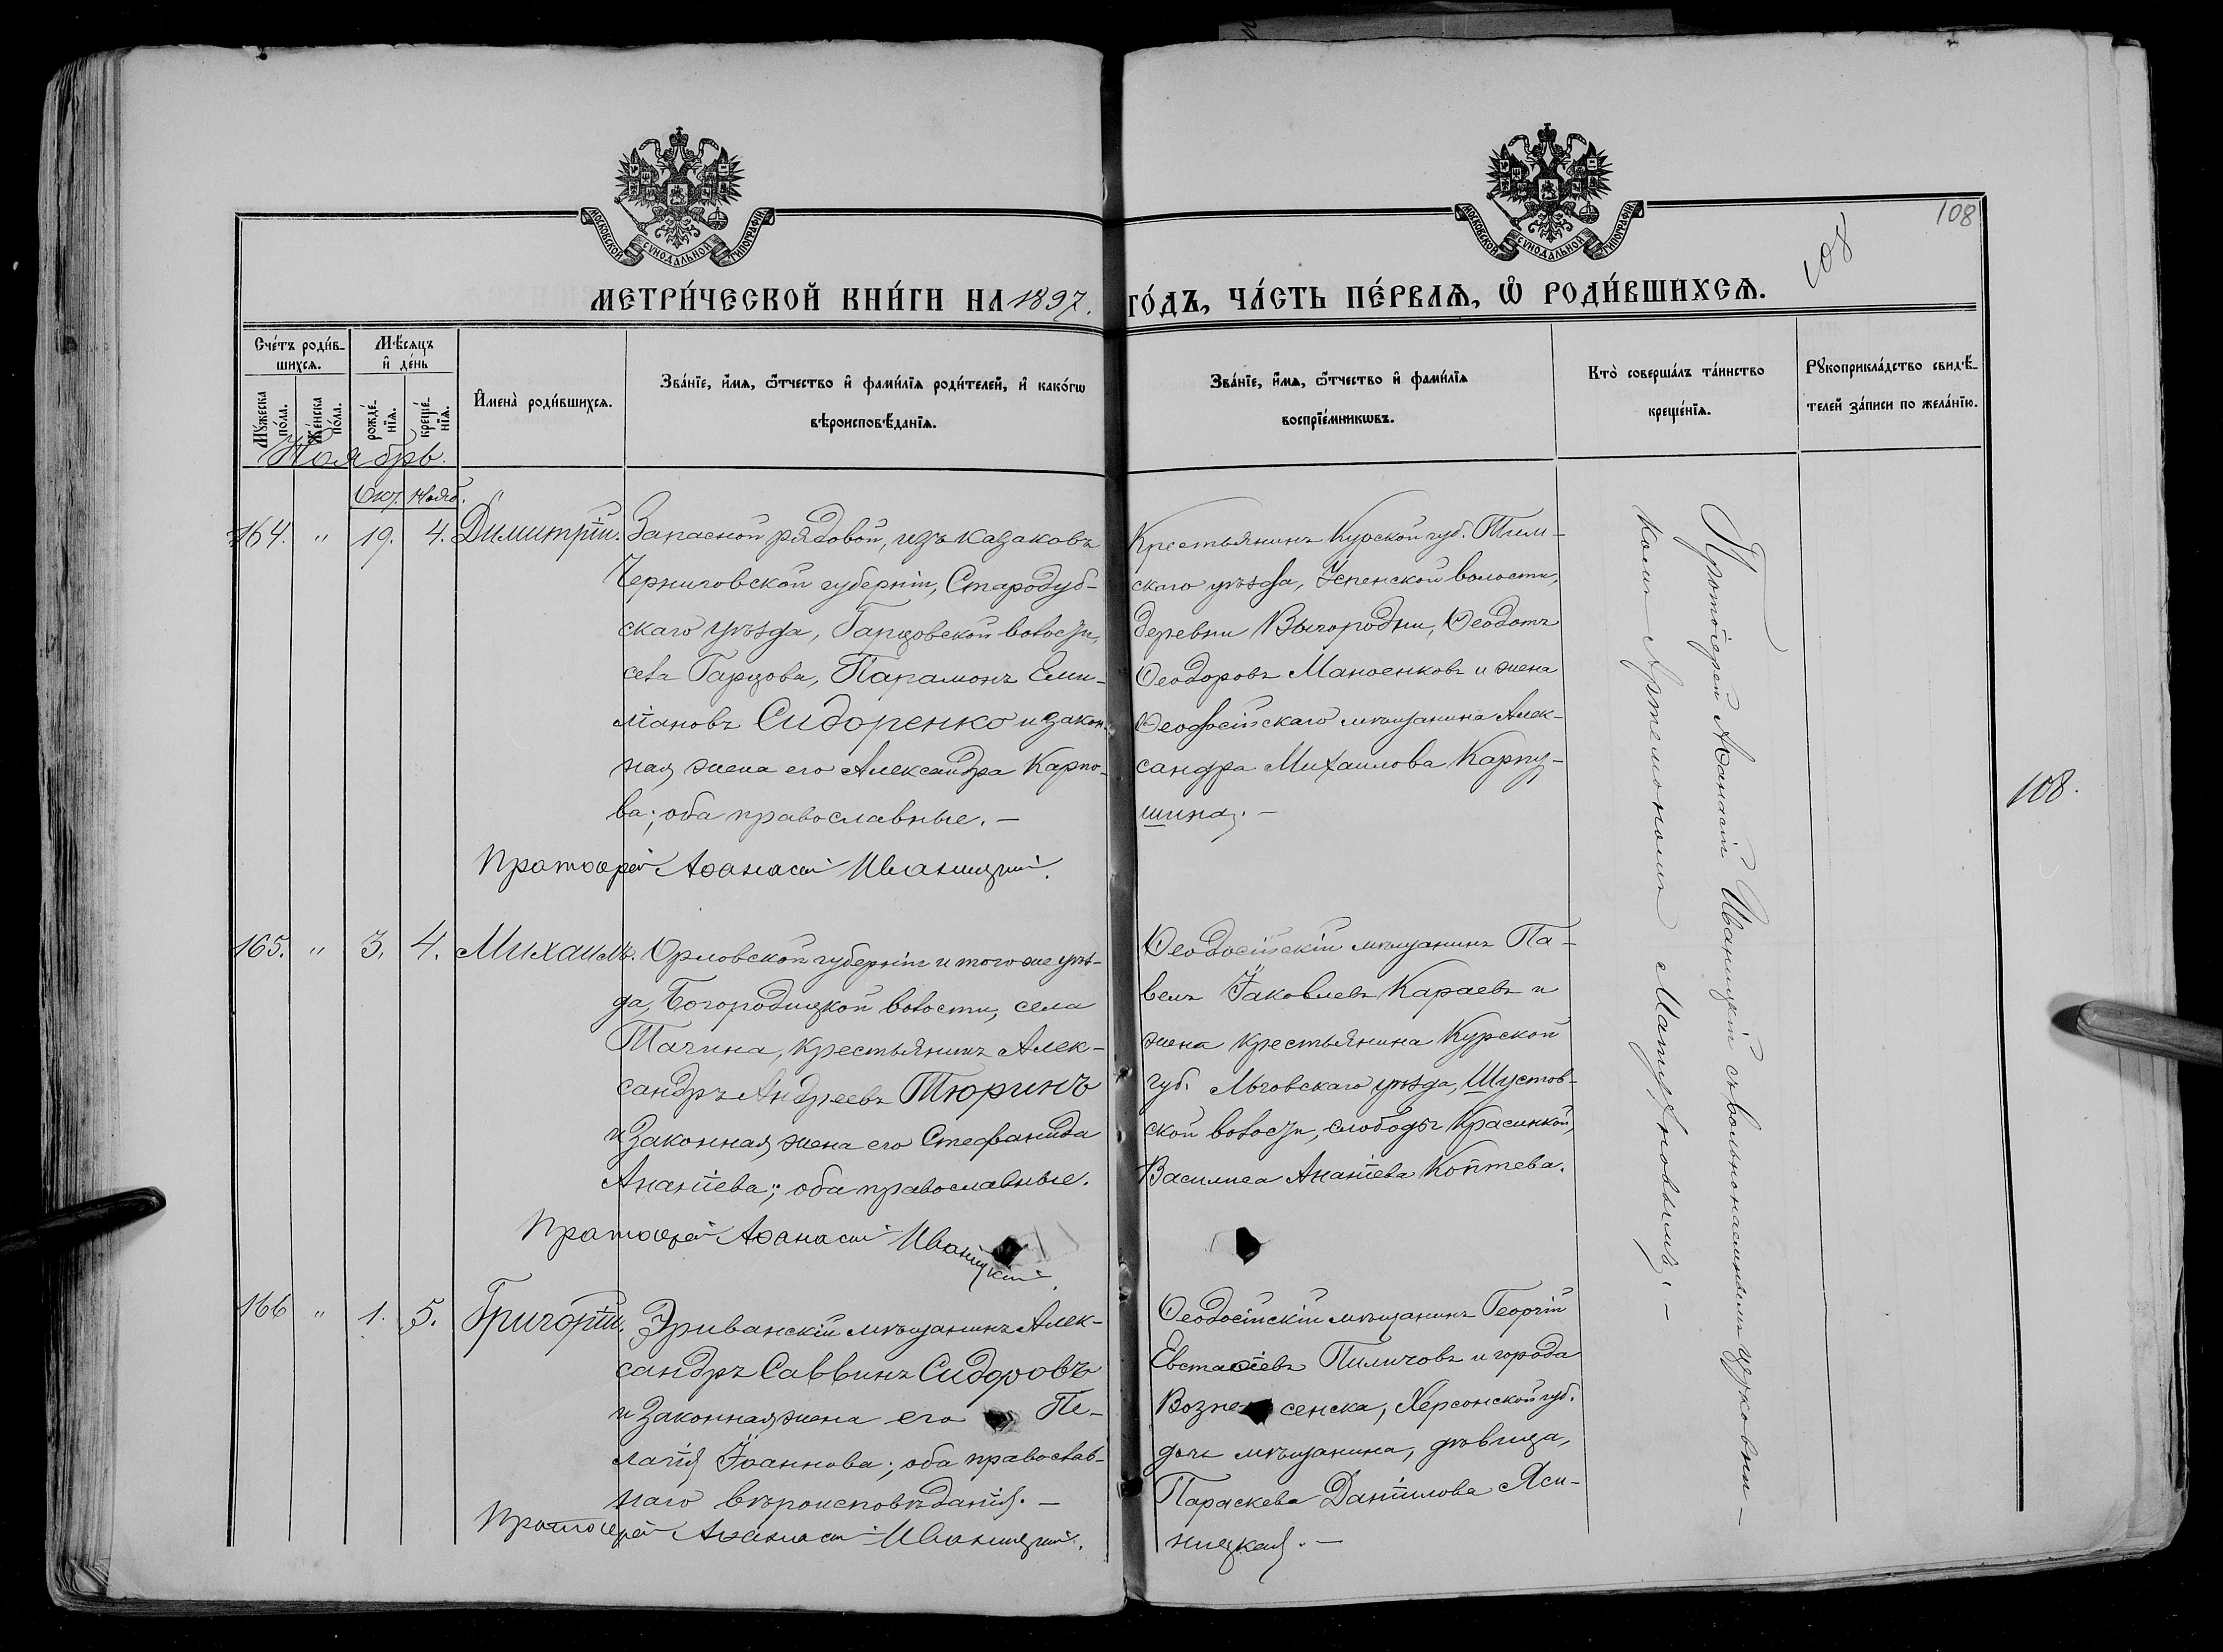 МОСКОВСКОЙ СѴНОДАЛЬНОЙ ТИПОГРАФІИ
МОСКОВСКОЙ СѴНОДАЛЬНОЙ ТИПОГРАФІИ
108
108
МЕТРИ́ЧЕСКОЙ КНИ́ГИ НА 1897. ГО́ДЪ, ЧА́СТЬ ПЕ́РВАѦ, Ѡ҆ РОДИ́ВШИХСѦ.
Сче́тъ роди́в-
шихсѧ.
Мѣ́сѧцъ
и҆ де́нь
Мꙋ́жеска по́ла.
Же́нска по́ла.
рожде́-
нїѧ.
креще́-
нїѧ.
И҆мена̀ роди́вшихсѧ.
Зва́нїе, и҆́мѧ, ѻ҆́тчество и҆ фами́лїѧ роди́телей, и҆ како́гѡ
вѣроисповѣ́данїѧ.
Зва́нїе, и҆́мѧ, ѻ҆́тчество и҆ фами́лїѧ
воспрїе́мникѡвъ.
Кто̀ соверша́лъ та́инство
креще́нїѧ.
Рꙋкоприкла́дство свидѣ́-
телей за́писи по жела́нїю.
Ноябрь.
Окт. Нояб.
164. " 19. 4. Димитрій. Запасной рядовой, изъ казаковъ
Черниговской губерніи, Стародуб-
скаго уѣзда, Гарцовской волости,
села Гарцова, Парамонъ Еми-
ліановъ Сидоренко и закон-
ная жена его Александра Карпо-
ва; оба православные. —
Протоіерей Аѳанасій Иваницкій.
Крестьянинъ Курской губ. Тим-
скаго уѣзда, Успенской волости,
деревни Выгородни, Ѳеодотъ
Ѳеодоровъ Маноенковъ и жена
Ѳеодосійскаго мѣщанина Алек-
сандра Михаилова Карпу-
шина. —
165. " 3. 4. Михаилъ. Орловской губерніи и того же уѣз-
да, Богородицкой волости, села
Тагина, крестьянинъ Алек-
сандръ Андреевъ Тюринъ
и законная жена его Стефанида
Ананіева; оба православные.
Протоіерей Аѳанасій Иваницкій.
Ѳеодосійскій мѣщанинъ Па-
велъ Іаковлевъ Караевъ и
жена крестьянина Курской
губ. Льговскаго уѣзда, Шустов-
ской волости, слободы Красинкой,
Василиса Ананіева Коптева.
166 " 1. 5. Григорій. Эриванскій мѣщанинъ Алек-
сандръ Саввинъ Сидоровъ
и законная жена его Пе-
лагія Іоаннова; оба православ-
наго вѣроисповѣданія. —
Протоіерей Аѳанасій Иваницкій.
Ѳеодосійскій мѣщанинъ Георгій
Евстаѳіевъ Пиличовъ и города
Вознесенска, Херсонской губ.
дочь мѣщанина, дѣвица,
Параскева Даніилова Яси-
ницкая. —
Протоіерей Аѳанасій Иваницкій съ вольнонаемнымъ церковни-
комъ Артемономъ Матухновымъ. —
108.